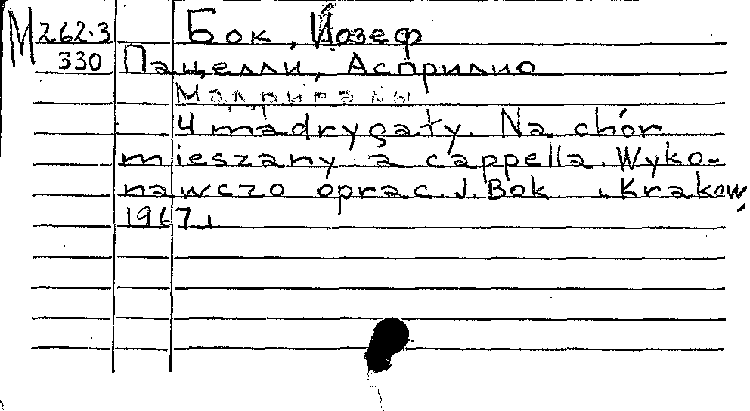 М 262.3 Бок, Йозеф
330 Пацелли, Асприлио
Мадригалы
4 madrygały. Na chór
mieszany a cappella. Wyko-
nawczo oprac. J. Bok. Krakow,
1967.